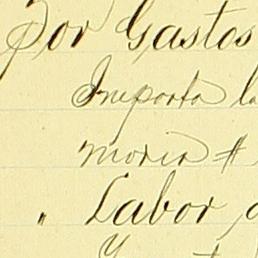 Por Gastos
Importa la
moria #
" Labor